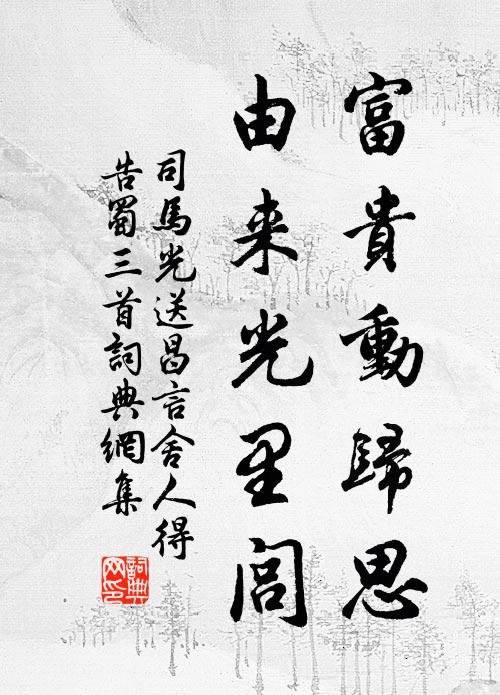 富貴動歸思
由来光里閭
司馬光送昌言舍人得
告蜀三首詞典網集
詞典
网印